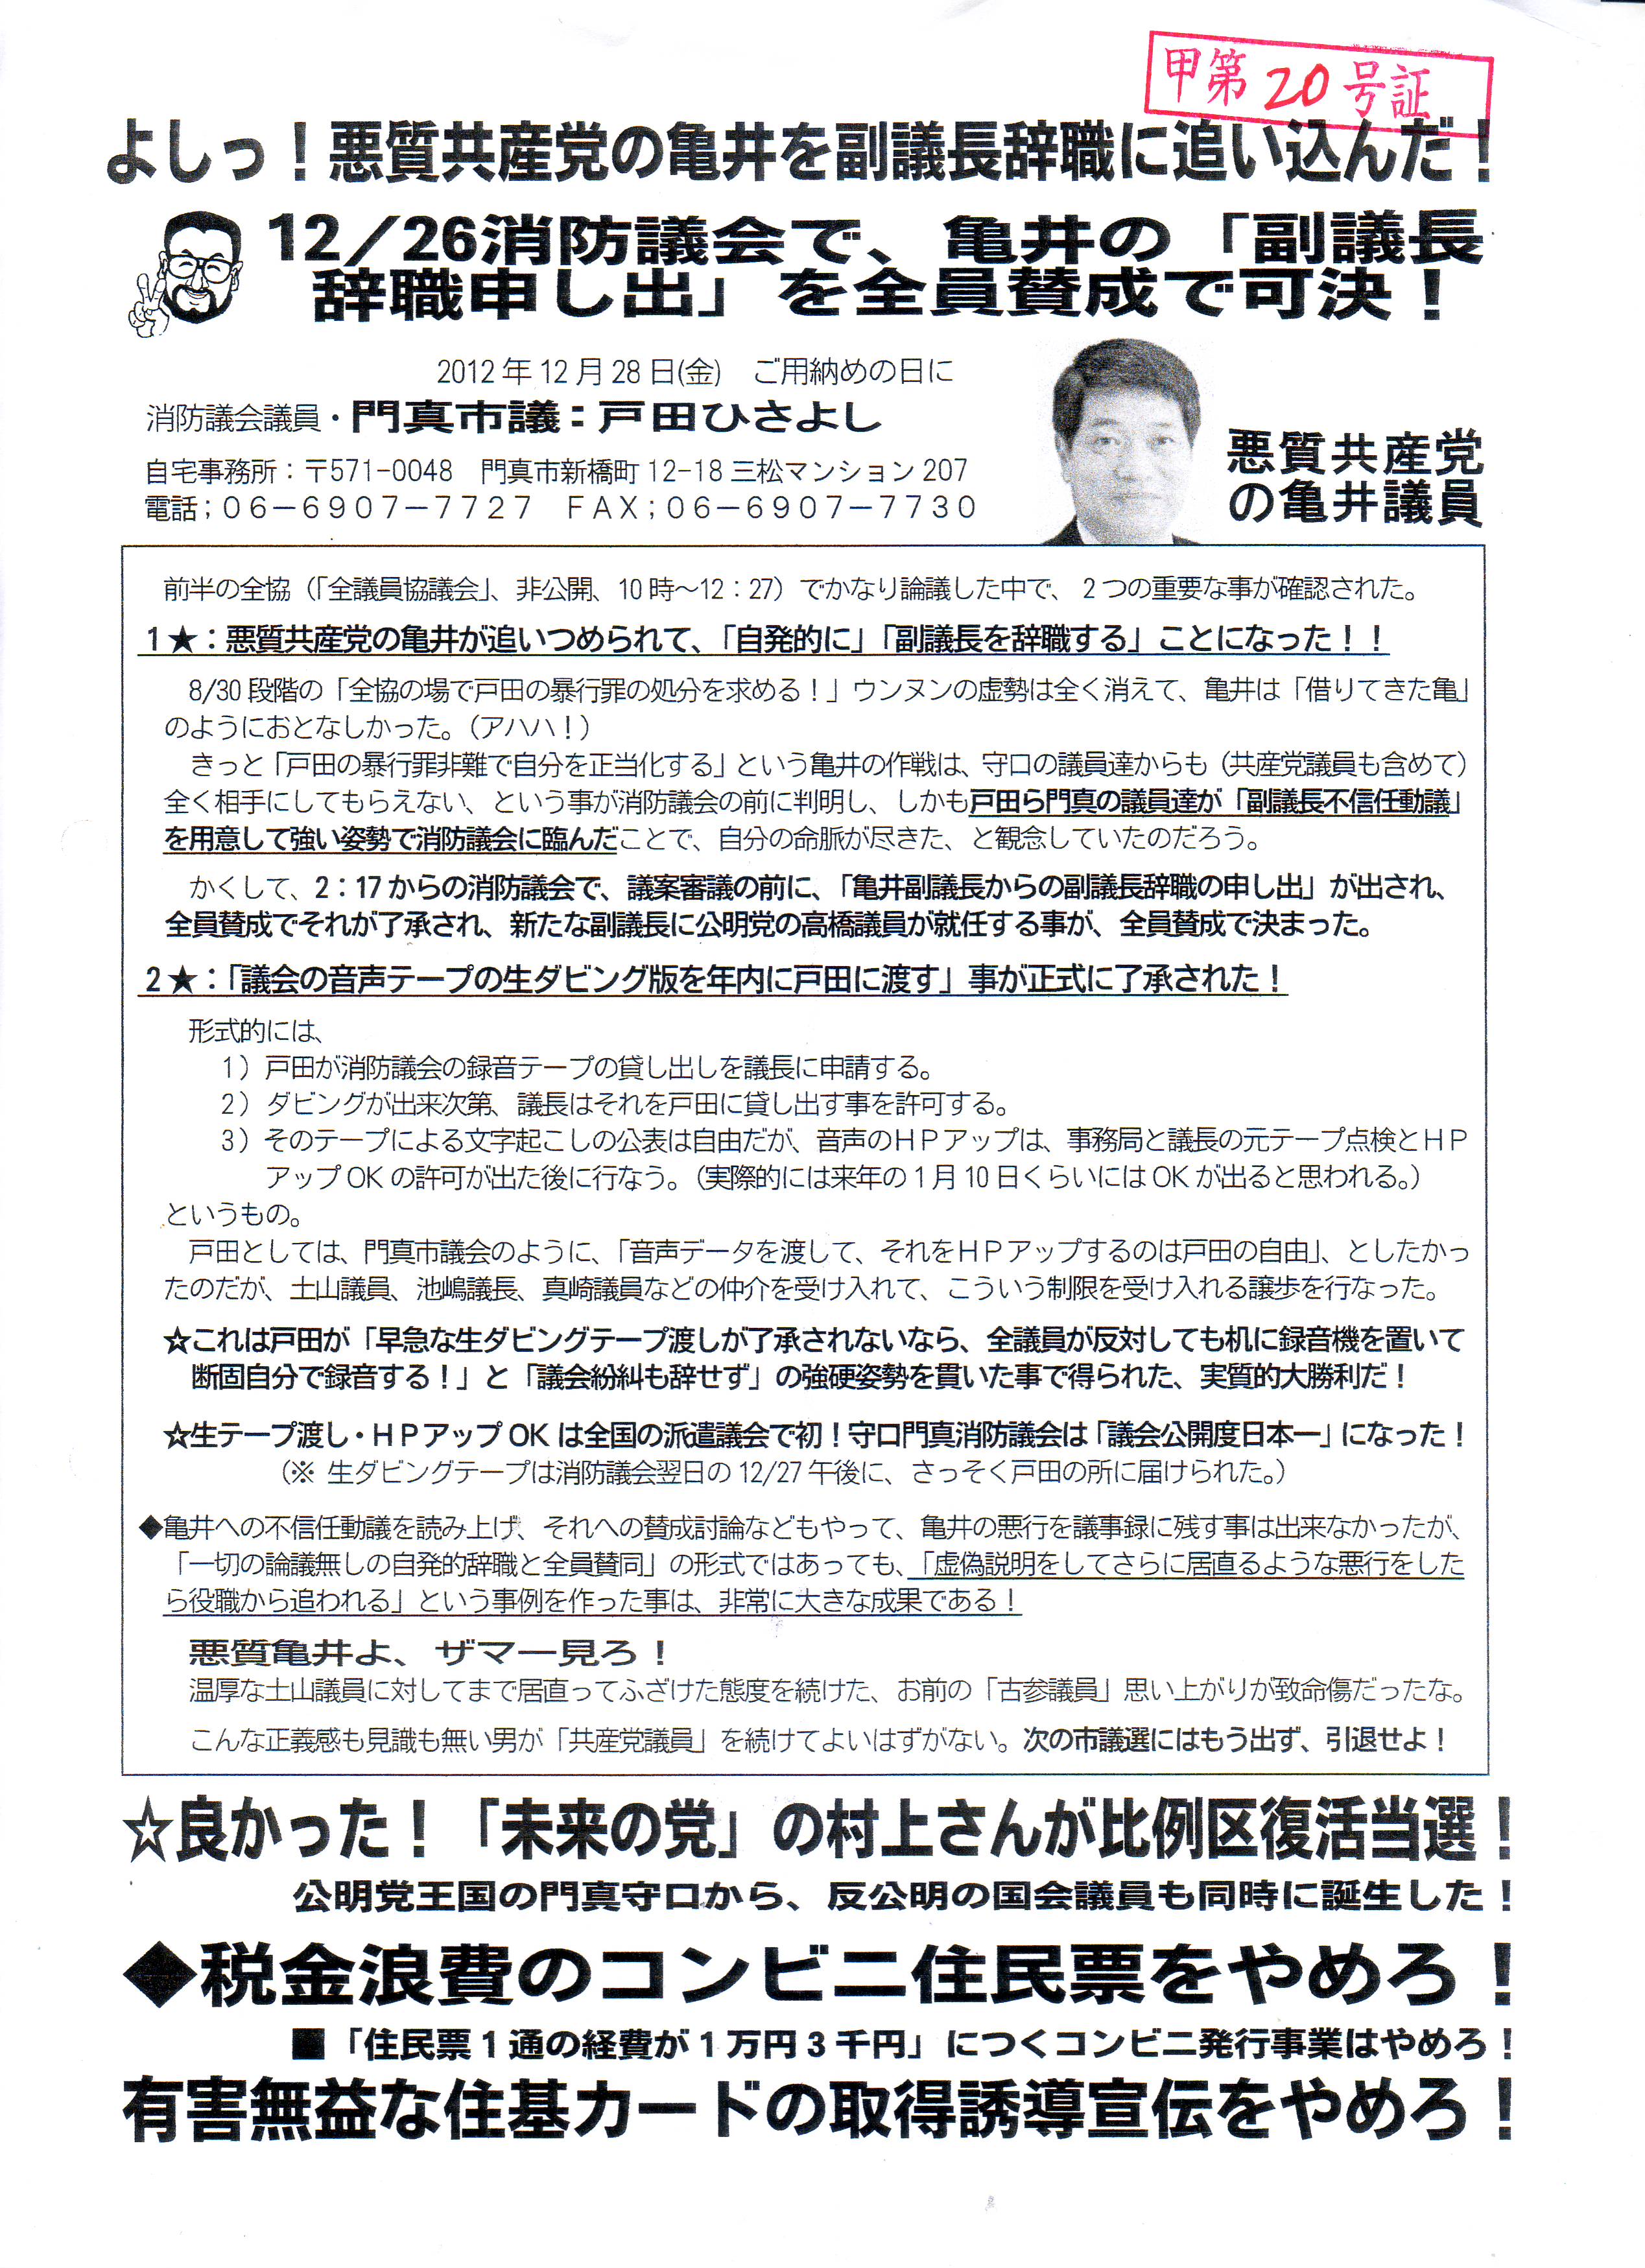 甲第20号証
よしっ！悪質共産党の亀井を副議長辞職に追い込んだ！
12／26消防議会で、亀井の「副議長
辞職申し出」を全員賛成で可決！
2012年12月28日(金)　ご用納めの日に
消防議会議員・門真市議：戸田ひさよし
自宅事務所：〒571-0048　門真市新橋町12-18三松マンション207
電話；０６－６９０７－７７２７　ＦＡＸ；０６－６９０７－７７３０
悪質共産党
の亀井議員
前半の全協（「全議員協議会」、非公開、10時～12：27）でかなり論議した中で、２つの重要な事が確認された。
１★：悪質共産党の亀井が追いつめられて、「自発的に」「副議長を辞職する」ことになった！！
8/30段階の「全協の場で戸田の暴行罪の処分を求める！」ウンヌンの虚勢は全く消えて、亀井は「借りてきた亀」
のようにおとなしかった。（アハハ！）
きっと「戸田の暴行罪非難で自分を正当化する」という亀井の作戦は、守口の議員達からも（共産党議員も含めて）
全く相手にしてもらえない、という事が消防議会の前に判明し、しかも戸田ら門真の議員達が「副議長不信任動議」
を用意して強い姿勢で消防議会に臨んだことで、自分の命脈が尽きた、と観念していたのだろう。
かくして、2：17からの消防議会で、議案審議の前に、「亀井副議長からの副議長辞職の申し出」が出され、
全員賛成でそれが了承され、新たな副議長に公明党の高橋議員が就任する事が、全員賛成で決まった。
２★：「議会の音声テープの生ダビング版を年内に戸田に渡す」事が正式に了承された！
形式的には、
１）戸田が消防議会の録音テープの貸し出しを議長に申請する。
２）ダビングが出来次第、議長はそれを戸田に貸し出す事を許可する。
３）そのテープによる文字起こしの公表は自由だが、音声のＨＰアップは、事務局と議長の元テープ点検とＨＰ
アップOKの許可が出た後に行なう。（実際的には来年の１月10日くらいにはOKが出ると思われる。）
というもの。
戸田としては、門真市議会のように、「音声データを渡して、それをＨＰアップするのは戸田の自由」、としたかっ
たのだが、土山議員、池嶋議長、真崎議員などの仲介を受け入れて、こういう制限を受け入れる譲歩を行なった。
☆これは戸田が「早急な生ダビングテープ渡しが了承されないなら、全議員が反対しても机に録音機を置いて
断固自分で録音する！」と「議会紛糾も辞せず」の強硬姿勢を貫いた事で得られた、実質的大勝利だ！
☆生テープ渡し・ＨＰアップOKは全国の派遣議会で初！守口門真消防議会は「議会公開度日本一」になった！
（※ 生ダビングテープは消防議会翌日の12/27午後に、さっそく戸田の所に届けられた。）
◆亀井への不信任動議を読み上げ、それへの賛成討論などもやって、亀井の悪行を議事録に残す事は出来なかったが、
「一切の論議無しの自発的辞職と全員賛同」の形式ではあっても、「虚偽説明をしてさらに居直るような悪行をした
ら役職から追われる」という事例を作った事は、非常に大きな成果である！
悪質亀井よ、ザマー見ろ！
温厚な土山議員に対してまで居直ってふざけた態度を続けた、お前の「古参議員」思い上がりが致命傷だったな。
こんな正義感も見識も無い男が「共産党議員」を続けてよいはずがない。次の市議選にはもう出ず、引退せよ！
☆良かった！「未来の党」の村上さんが比例区復活当選！
公明党王国の門真守口から、反公明の国会議員も同時に誕生した！
◆税金浪費のコンビニ住民票をやめろ！
■「住民票１通の経費が１万円３千円」につくコンビニ発行事業はやめろ！
有害無益な住基カードの取得誘導宣伝をやめろ！